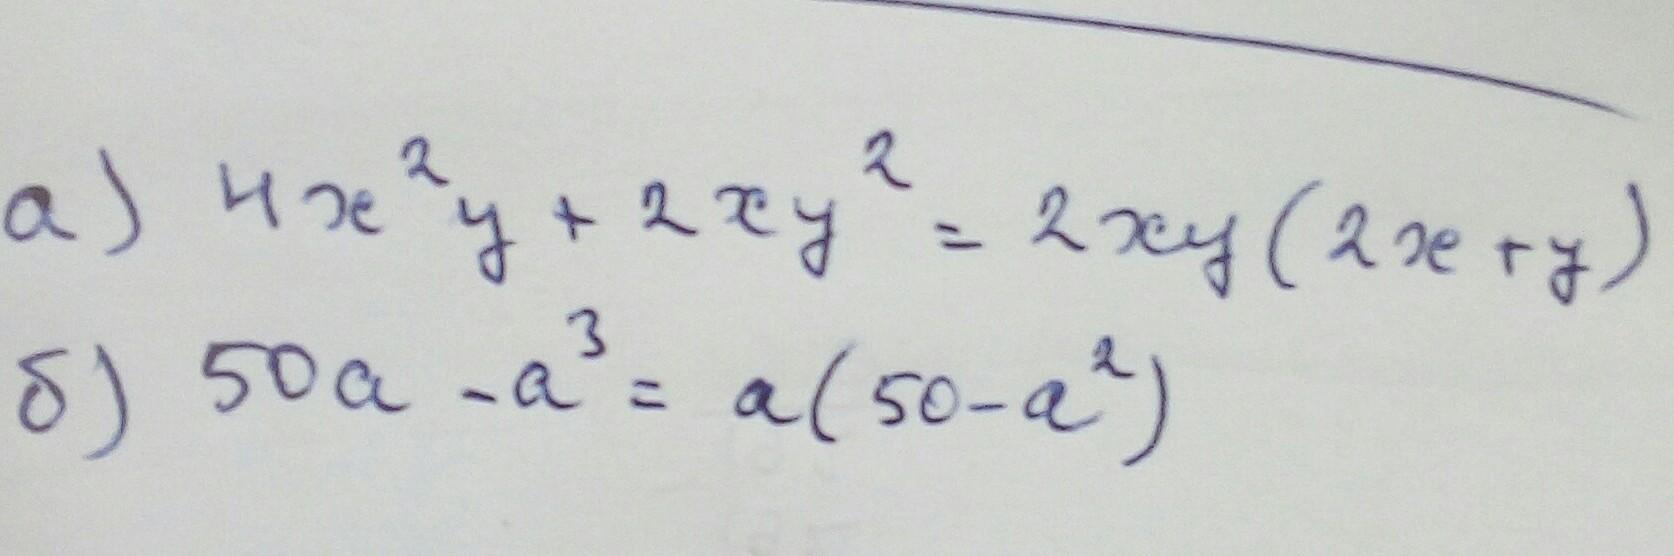 а) 4x²y + 2xy² = 2xy(2x+y)
б) 50a - a³ = a(50-a²)